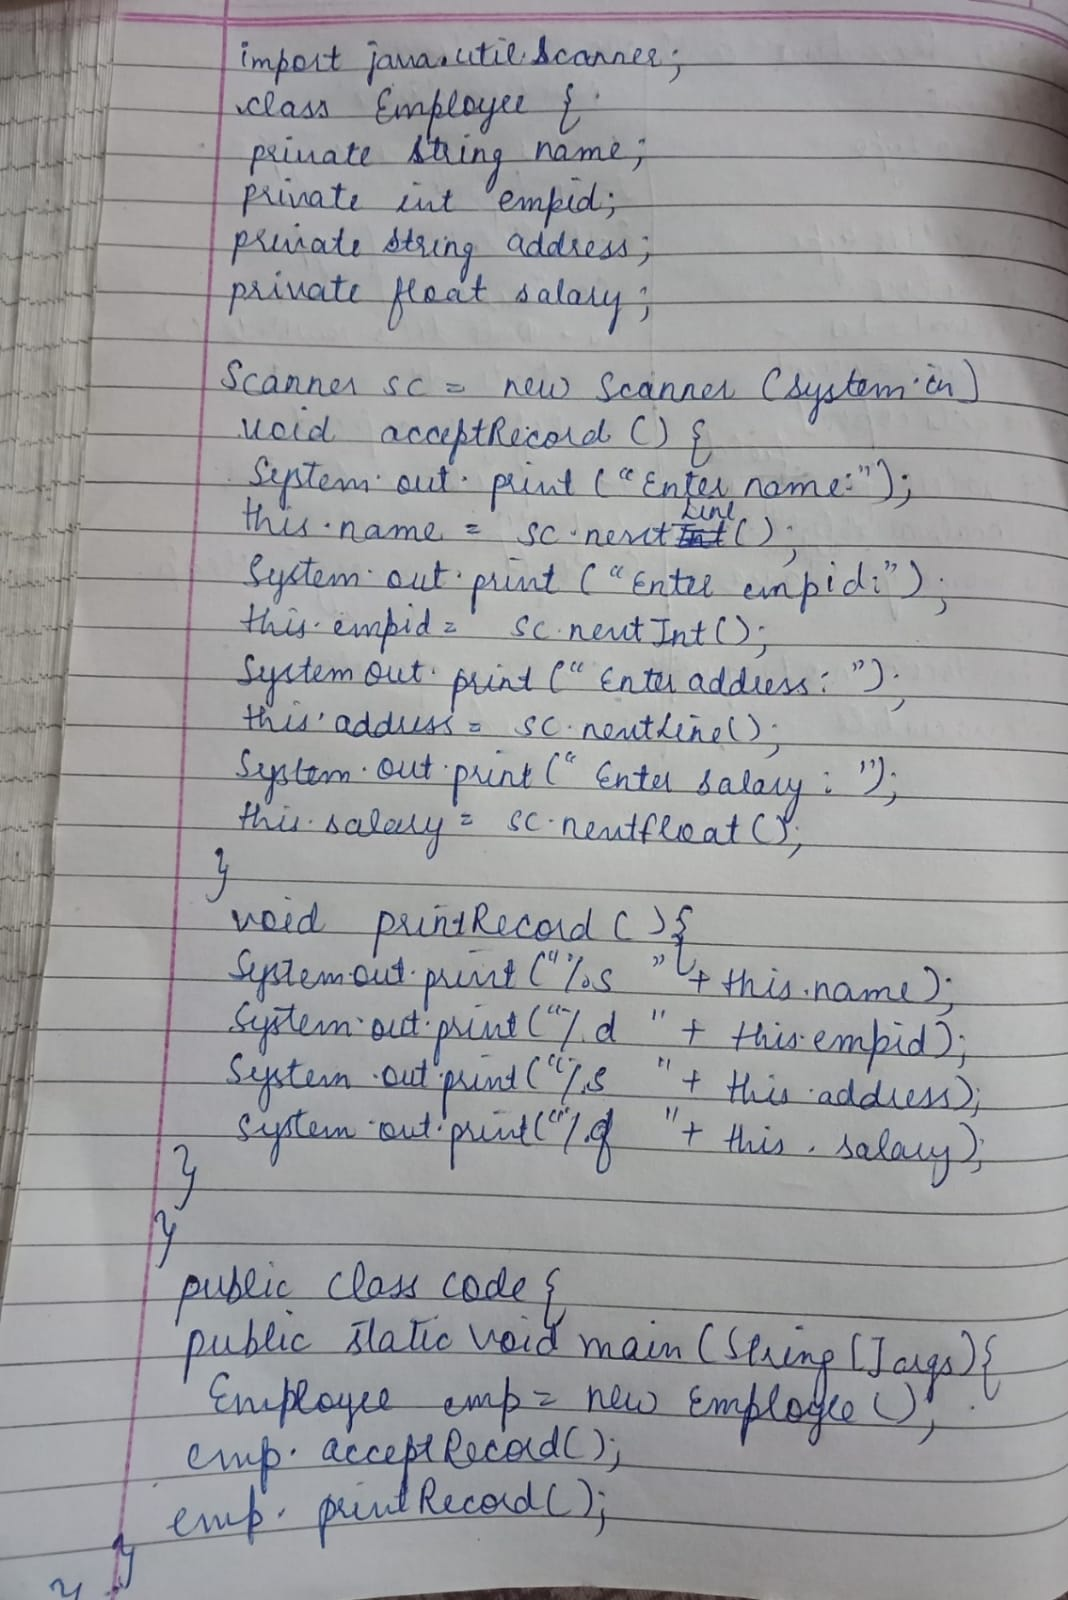 import java.util.Scanner;
class Employee {
private string name;
private int empid;
private string address;
private float salary;
Scanner sc = new Scanner (system.in)
void acceptRecord () {
System.out.print ("Enter name:");
this.name = sc.nextLine();
System.out.print ("Enter empid:");
this.empid = sc.nextInt();
System out.print (" Enter address: ");
this.address = sc.nextLine();
System.out.print (" Enter salary : ");
this.salary = sc.nextfloat();
}
void printRecord () {
System out.print ("%s " + this.name);
System.out.print ("%d " + this.empid);
System.out.print ("%s " + this.address);
System.out.print ("%f " + this.salary);
}
}
public class code {
public static void main (String [] args) {
Employee emp = new Employee ();
emp.acceptRecord();
emp.printRecord();
}
}